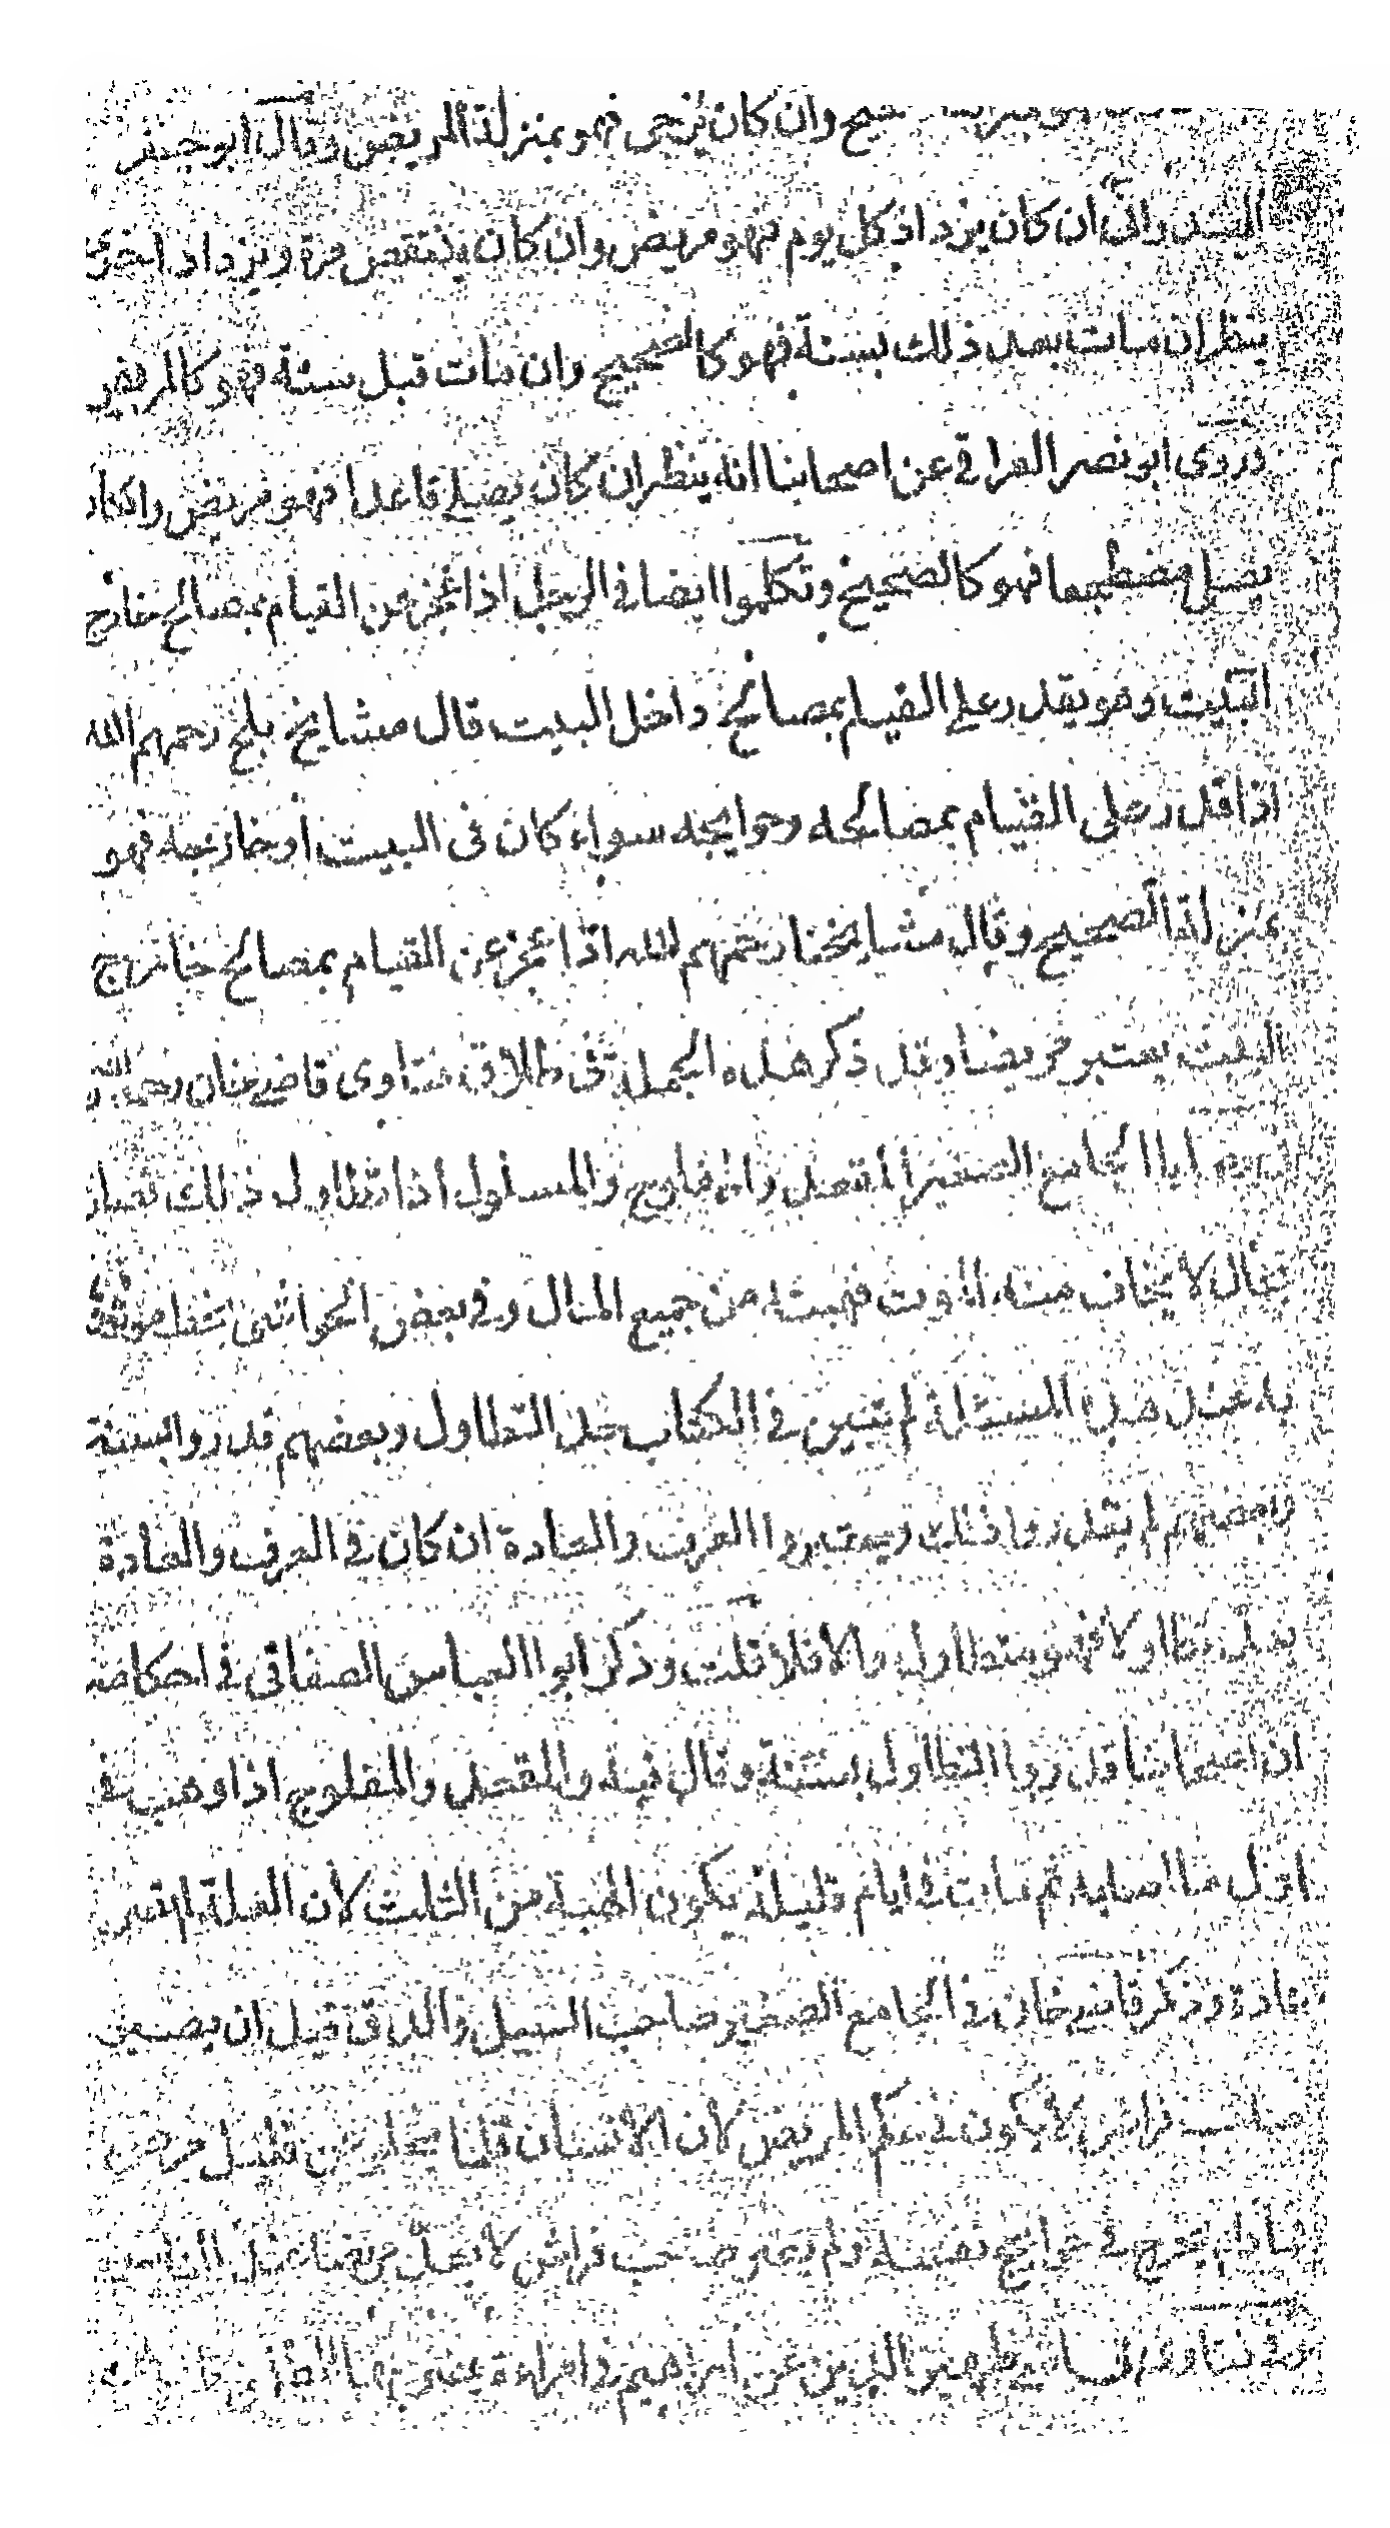 صحيح وان كان يرجى فهو بمنزلة المريض وقال ابو جعفر
ان كان يزداد كل يوم فهو مريض وان كان ينتقص مرة ويزداد اخرى
ينظر ان مات بعد ذلك بسنة فهو كالصحيح وان مات قبل سنة فهو كالمريض
وروى ابو نصر العراقي عن اصحابنا انه ينظر ان كان يصلي قاعدا فهو مريض وان كان
يصلي مضطجعا فهو كالصحيح وتكلموا ايضا في الرجل اذا عجز عن القيام بمصالح خارج
البيت وهو يقدر على القيام بمصالح داخل البيت قال مشايخ بلخ رحمهم الله
اذا قدر على القيام بمصالحه وحوايجه سواء كان في البيت او خارجه فهو
بمنزلة الصحيح وقال مشايخنا رحمهم الله اذا عجز عن القيام بمصالح خارج
البيت يعتبر مريضا وقد ذكر هذه الجملة في طلاق فتاوى قاضيخان رحمه الله
الجامع الصغير المقعد والمفلوج والمسلول اذا تطاول ذلك فصار
بحال لا يخاف منه الموت فهبته من جميع المال وفي بعض الحواشي
هذه المسئلة لم يتبين في الكتاب حد التطاول وبعضهم قدروا بسنة
وبعضهم لم يقدروا ذلك ويعتبروا العرف والعادة ان كان في العرف والعادة
يعد تطاولا فهو متطاول والا فلا قلت وذكر ابو العباس في احكامه
ان اصحابنا قدروا التطاول بسنة وقال فيه والمقعد والمفلوج اذا وهب في
اول ما اصابه ثم مات في ايام قليلة يكون الهبة من الثلث لان العلة لم تصر
عادة وذكر قاضيخان في الجامع الصغير صاحب السل والدق قبل ان يصير
صاحب فراش لا يكون في حكم المريض لان الانسان قلما يخلو عن قليل مرض
فما دام يخرج في حوايج نفسه ولم يصر صاحب فراش لا يعد مريضا عند الناس
وفي فتاوى ظهير الدين عن ابراهيم